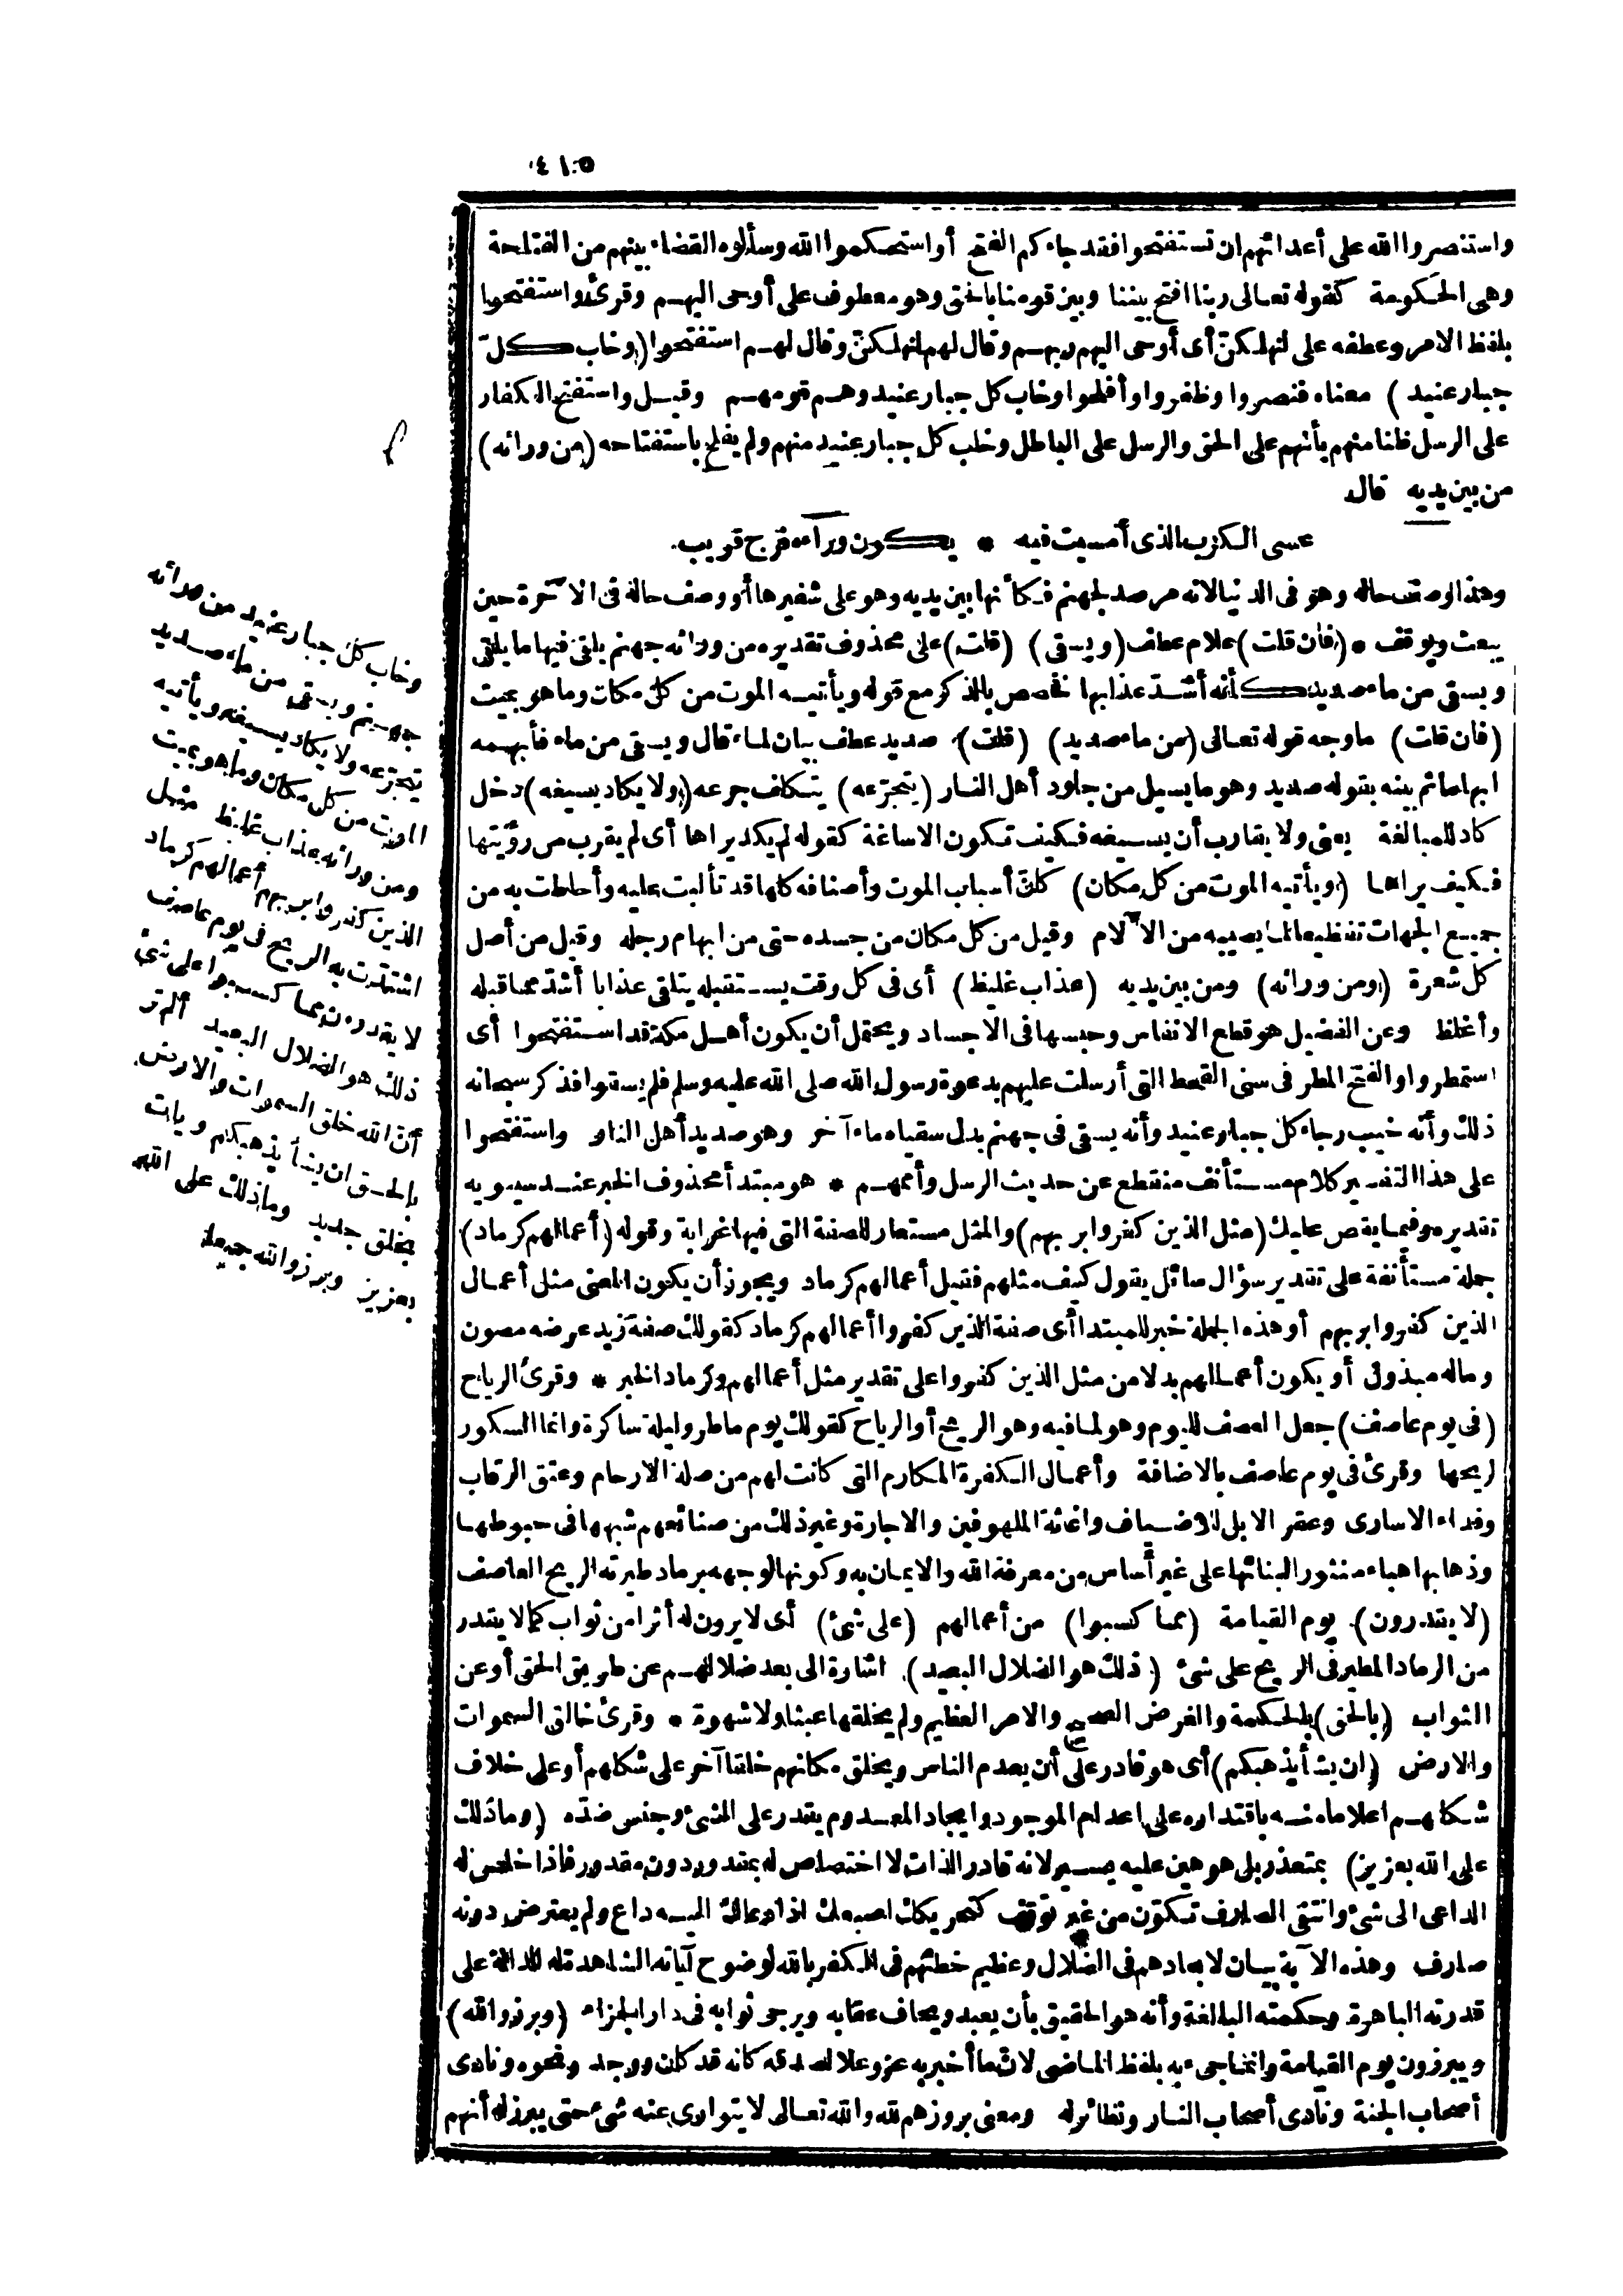 ٥١٤
واستنصروا الله على أعدائهم ان تستفتحوا فقد جاءكم الفتح أو استحكموا الله وسألوه القضاء بينهم من الفتاحة
وهى الحكومة كقوله تعالى ربنا افتح بيننا وبين قومنا بالحق وهو معطوف على أوحى اليهم وقرئ واستفتحوا
بلفظ الامر وعطفه على لنهلكنّ أى أوحى اليهم ربهم وقال لهم لنهلكنّ وقال لهم استفتحوا (وخاب كلّ
جبار عنيد) معناه فنصروا وظفروا وأفلحوا وخاب كل جبار عنيد وهم قومهم وقيل واستفتح الكفار
على الرسل ظنا منهم بأنهم على الحق والرسل على الباطل وخاب كل جبار عنيد منهم ولم يفلح باستفتاحه (من ورائه)
من بين يديه قال
عسى الكرب الذى أمسيت فيه * يكون وراءه فرج قريب
وهذا وصف حاله وهو فى الدنيا لانه مرصد لجهنم فكأنها بين يديه وهو على شفيرها أو وصف حاله فى الآخرة حين
يبعث ويوقف * (فان قلت) علام عطف (ويسقى) (قلت) على محذوف تقديره من ورائه جهنم يلقى فيها ما يلقى
ويسقى من ماء صديد كأنه أشدّ عذابها فخصص بالذكر مع قوله ويأتيه الموت من كل مكان وما هو بميت
(فان قلت) ما وجه قوله تعالى (من ماء صديد) (قلت) صديد عطف بيان لماء قال ويسقى من ماء فأبهمه
ابهاما ثم بينه بقوله صديد وهو ما يسيل من جلود أهل النار (يتجرّعه) يتكلف جرعه (ولا يكاد يسيغه) دخل
كاد للمبالغة يعنى ولا يقارب أن يسيغه فكيف تكون الاساغة كقوله لم يكد يراها أى لم يقرب من رؤيتها
فكيف يراها (ويأتيه الموت من كل مكان) كأنّ أسباب الموت وأصنافه كلها قد تألبت عليه وأحاطت به من
جميع الجهات تفظيعا لما يصيبه من الآلام وقيل من كل مكان من جسده حتى من ابهام رجله وقيل من أصل
كل شعرة (ومن ورائه) ومن بين يديه (عذاب غليظ) أى فى كل وقت يستقبله يتلقى عذابا أشدّ مما قبله
وأغلظ وعن الفضيل هو قطع الانفاس وحبسها فى الاجساد ويحتمل أن يكون أهل مكة قد استفتحوا أى
استمطروا والفتح المطر فى سنى القحط التى أرسلت عليهم بدعوة رسول الله صلى الله عليه وسلم فلم يسقوا فذكر سبحانه
ذلك وأنه خيب رجاء كل جبار عنيد وأنه يسقى فى جهنم بدل سقياه ماء آخر وهو صديد أهل النار واستفتحوا
على هذا التفسير كلام مستأنف منقطع عن حديث الرسل وأممهم * هو مبتدأ محذوف الخبر عند سيبويه
تقديره وفيما يقص عليك (مثل الذين كفروا بربهم) والمثل مستعار للصفة التى فيها غرابة وقوله (أعمالهم كرماد)
جملة مستأنفة على تقدير سؤال سائل يقول كيف مثلهم فقيل أعمالهم كرماد ويجوز أن يكون المعنى مثل أعمال
الذين كفروا بربهم أو هذه الجملة خبر للمبتدا أى صفة الذين كفروا أعمالهم كرماد كقولك صفة زيد عرضه مصون
وماله مبذول أو يكون أعمالهم بدلا من مثل الذين كفروا على تقدير مثل أعمالهم وكرماد الخبر * وقرئ الرياح
(فى يوم عاصف) جعل العصف لليوم وهو لما فيه وهو الريح أو الرياح كقولك يوم ماطر وليلة ساكرة وانما السكور
لريحها وقرئ فى يوم عاصف بالاضافة وأعمال الكفرة المكارم التى كانت لهم من صلة الارحام وعتق الرقاب
وفداء الاسارى وعقر الابل للاضياف واغاثة الملهوفين والاجارة وغير ذلك من صنائعهم شبهها فى حبوطها
وذهابها هباء منثورا لبنائها على غير أساس من معرفة الله والايمان به وكونها لوجهه برماد طيرته الريح العاصف
(لا يقدرون) يوم القيامة (مما كسبوا) من أعمالهم (على شئ) أى لا يرون له أثرا من ثواب كما لا يقدر
من الرماد المطير فى الريح على شئ (ذلك هو الضلال البعيد) اشارة الى بعد ضلالهم عن طريق الحق أو عن
الثواب (بالحق) بالحكمة والغرض الصحيح والامر العظيم ولم يخلقها عبثا ولا شهوة * وقرئ خالق السموات
والارض (ان يشأ يذهبكم) أى هو قادر على أن يعدم الناس ويخلق مكانهم خلقا آخر على شكلهم أو على خلاف
شكلهم اعلاما منه باقتداره على اعدام الموجود وايجاد المعدوم يقدر على الشئ وجنس ضدّه (وما ذلك
على الله بعزيز) بمتعذر بل هو هين عليه يسير لانه قادر الذات لا اختصاص له بمقدور دون مقدور فاذا خلص له
الداعى الى شئ وانتفى الصارف تكوّن من غير توقف كتحريكك اصبعك اذا دعاك اليه داع ولم يعترض دونه
صارف وهذه الآية بيان لابعادهم فى الضلال وعظيم خطئهم فى الكفر بالله لوضوح آياته الشاهدة له الدالة على
قدرته الباهرة وحكمته البالغة وأنه هو الحقيق بأن يعبد ويخاف عقابه ويرجى ثوابه فى دار الجزاء (وبرزوا لله)
ويبرزون يوم القيامة وانما جىء به بلفظ الماضى لانّ ما أخبر به عز وعلا لصدقه كانه قد كان ووجد ونحوه ونادى
أصحاب الجنة ونادى أصحاب النار ونظائر له ومعنى بروزهم لله والله تعالى لا يتوارى عنه شئ حتى يبرز له أنهم
وخاب كل جبار عنيد من ورائه
جهنم ويسقى من ماء صديد
يتجرّعه ولا يكاد يسيغه ويأتيه
الموت من كل مكان وما هو بميت
ومن ورائه عذاب غليظ مثل
الذين كفروا بربهم أعمالهم كرماد
اشتدّت به الريح فى يوم عاصف
لا يقدرون مما كسبوا على شئ
ذلك هو الضلال البعيد ألم تر
أنّ الله خلق السموات والارض
بالحق ان يشأ يذهبكم ويأت
بخلق جديد وما ذلك على الله
بعزيز وبرزوا لله جميعا